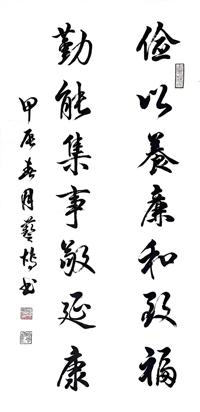 儉以養廉和致福
勤能集事敬延康
甲辰春月藝鴻书